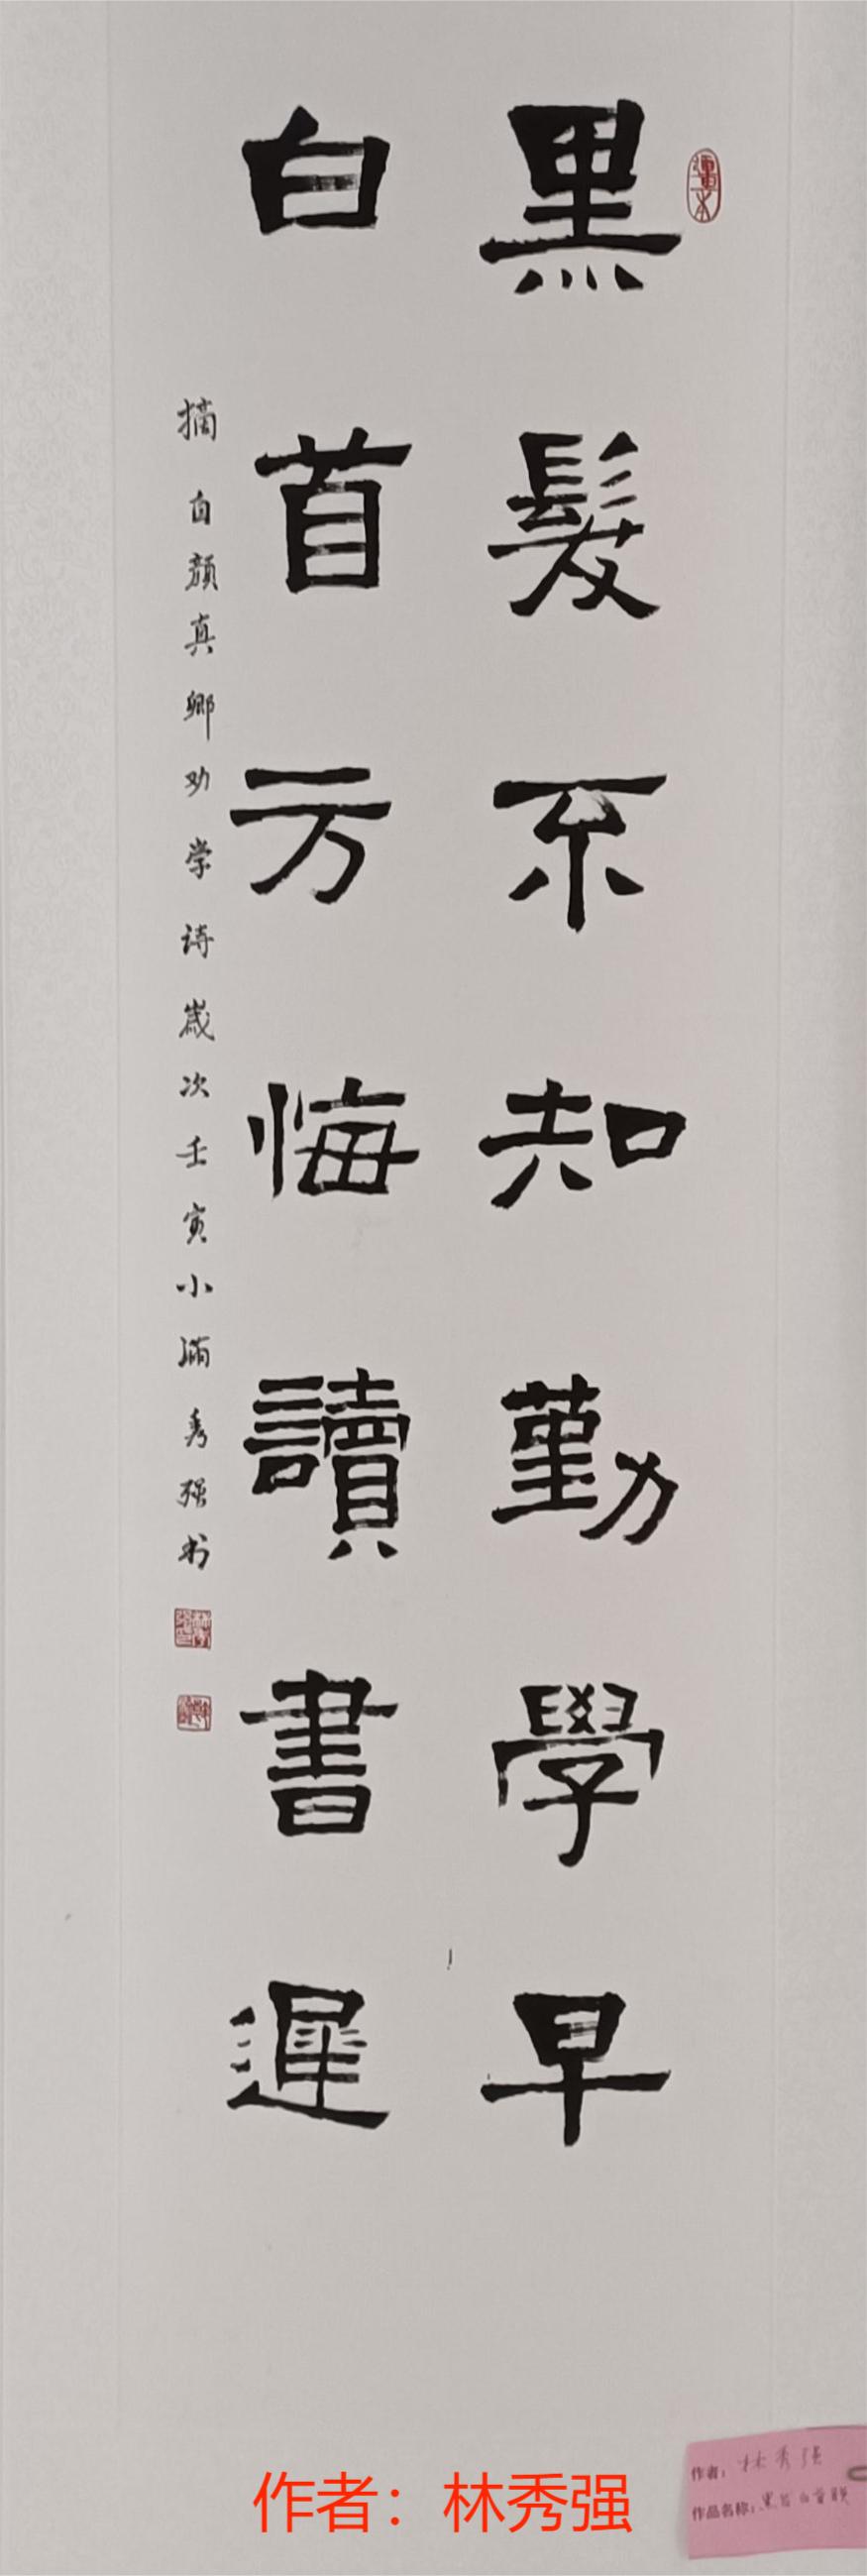 黑髮不知勤學早
白首方悔讀書遲
摘自颜真卿劝学诗歲次壬寅小满秀强书
作者：林秀强
作者：林秀强
作品名称：